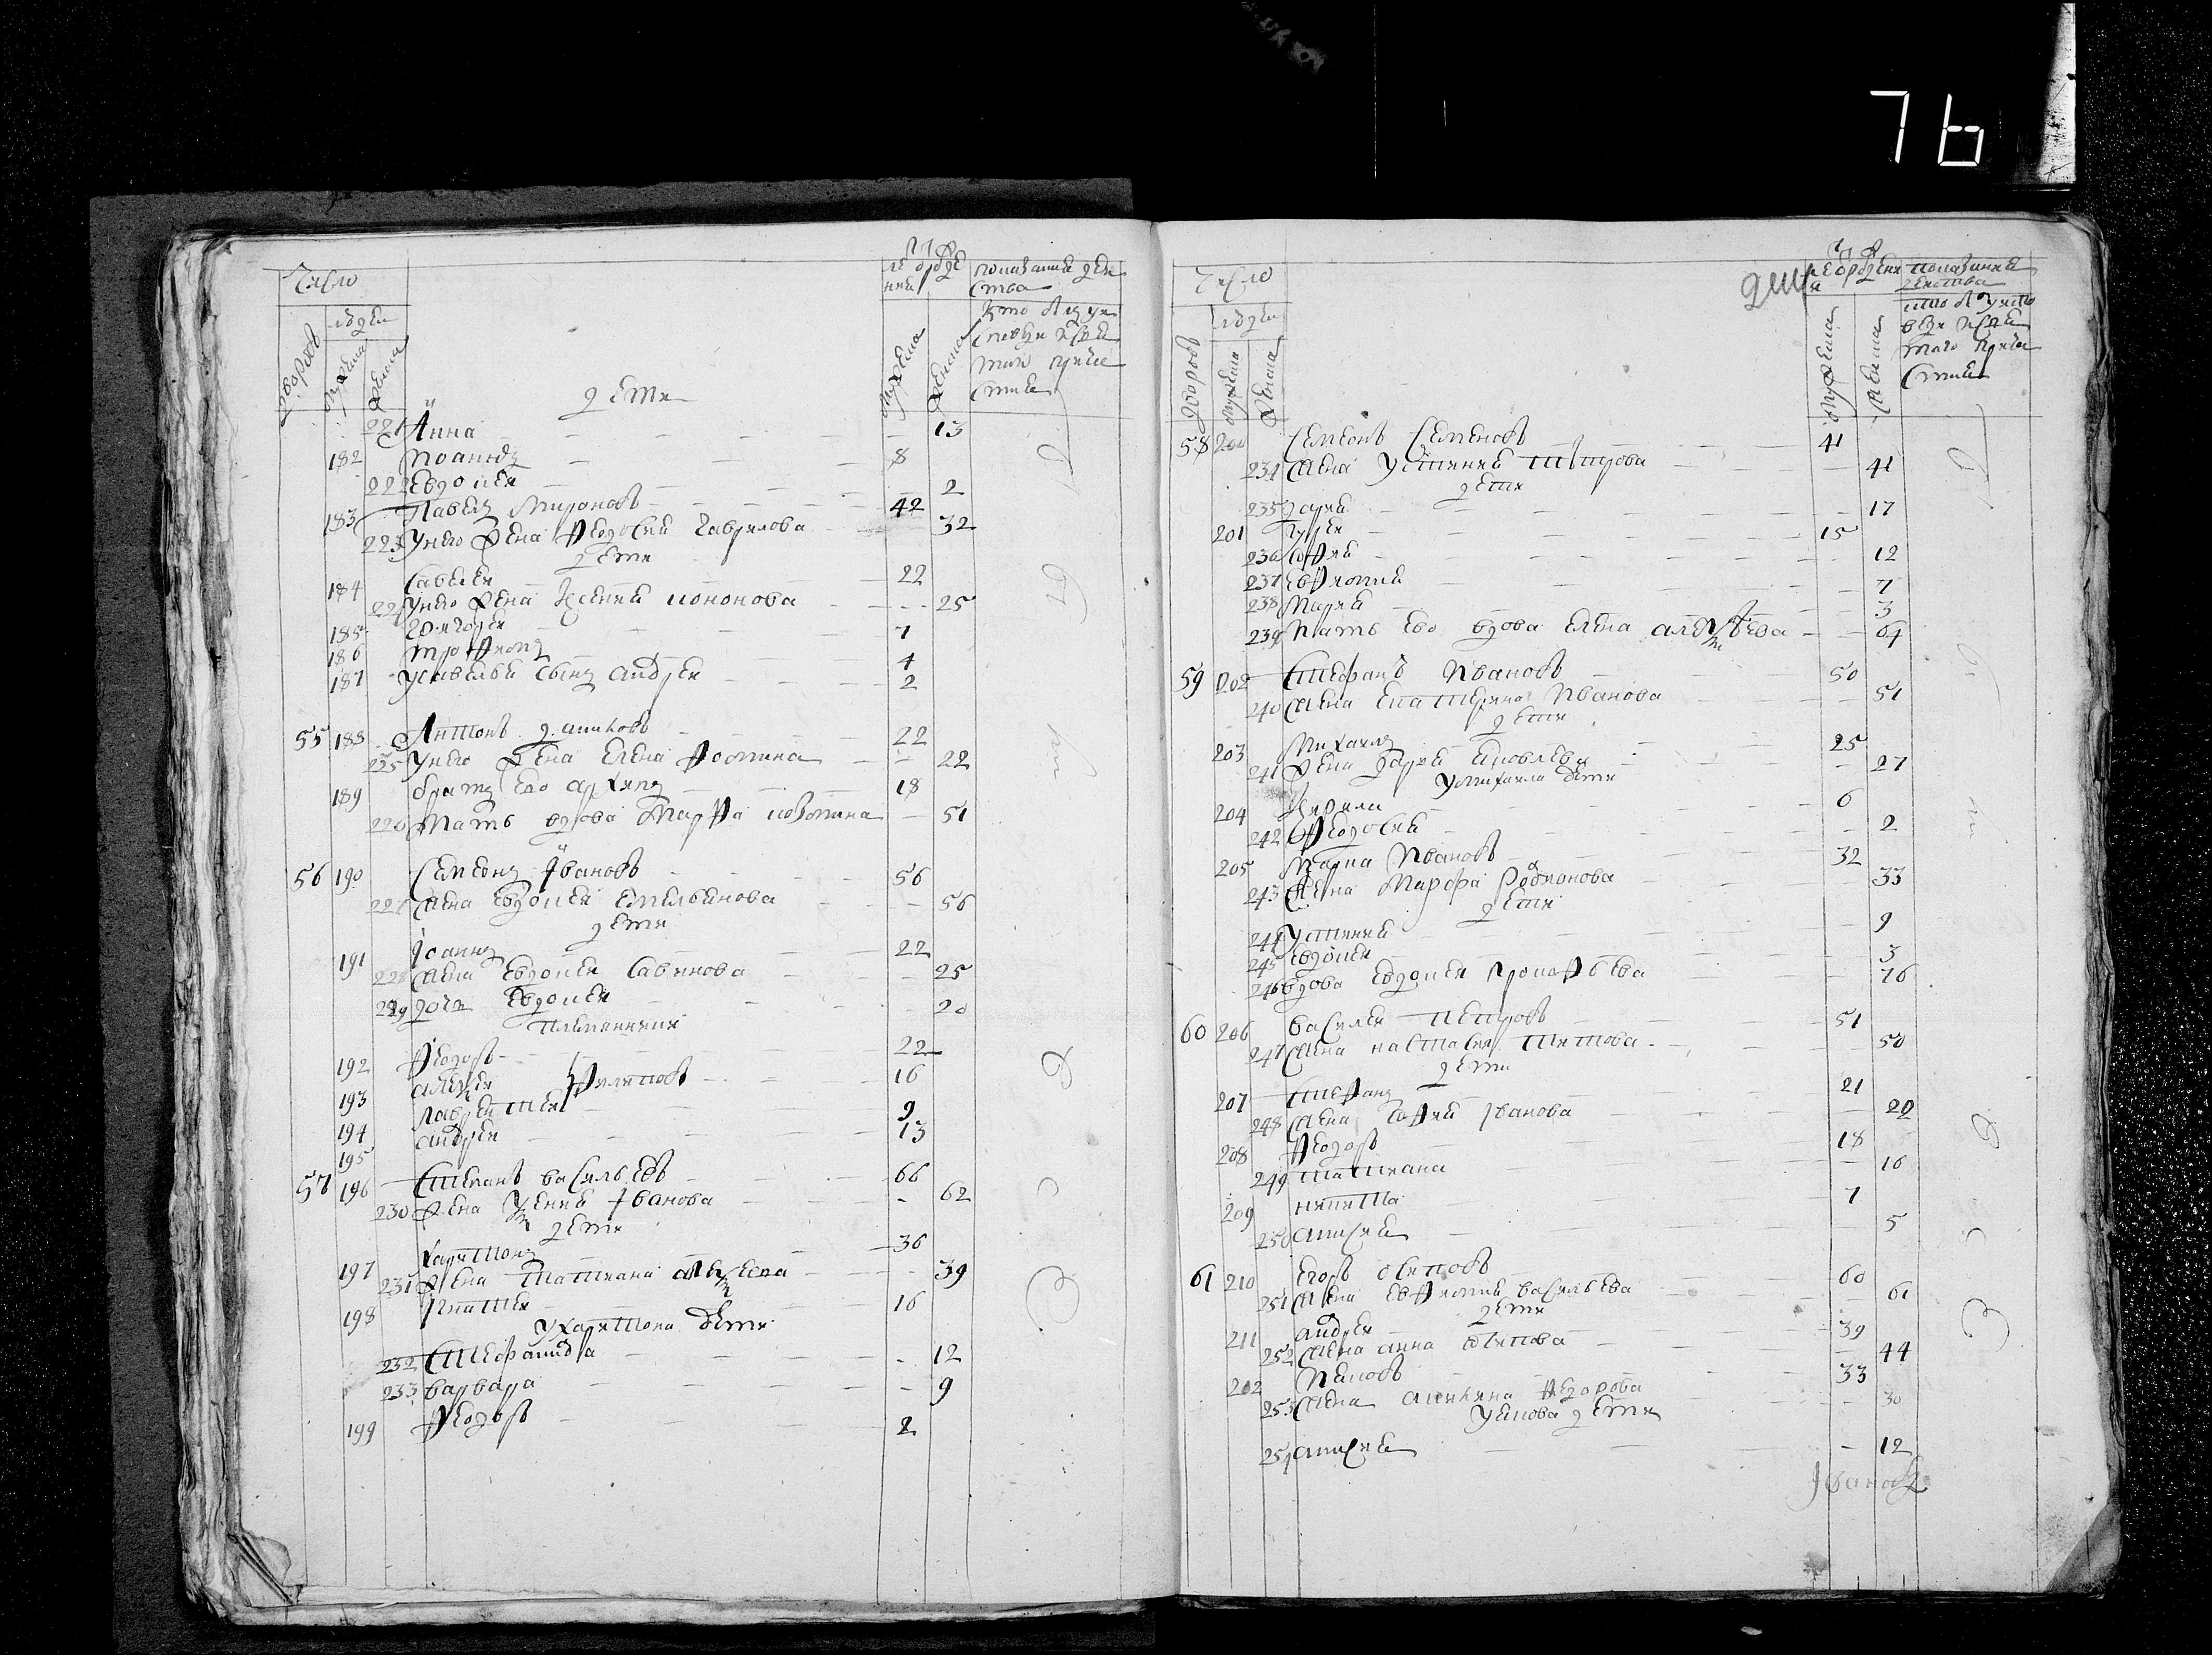 76
Число
людей
дворовъ
мужеска
женска
лѣ от рожде
нія
мужеска
женска
показаніе дѣй
ства
Кто былъ у ис
повѣди и свя
таго прича
стія
дети
221 Анна 13
182 Иоаннъ 8
222 Евдокия 2
183 Павелъ Мироновъ 42
223 у него жена Федосия Гаврилова 32
дети
184 Савелей 22
224 у него жена Ксения 25
185 Григорей 7
186 Трофимъ 4
187 у Савелья сынъ Андрей 2
55 188 Антонъ 22
225 у него жена Елена Фомина 22
189 братъ его Архипъ 18
226 Мать вдова Марфа Козмина 51
56 190 Семенъ Ивановъ 56
227 жена Евдокия Емельянова 56
дети
191 Иоаннъ 22
228 жена Евдокия Савинова 25
229 дочь Евдокия 20
племянники
192 Федоръ 22
193 Алексей Филиповъ 16
194 Лаврентей 9
195 Андрей 13
57 196 Степанъ Васильевъ 66
230 жена Ксения Иванова 62
дети
197 Харитонъ 36
231 жена Татиана Алексеева 39
198 Игнатей 16
у Харитона дети
232 Стефанида 12
233 Варвара 9
199 Федоръ 2
Число
людей
дворовъ
мужеска
женска
лѣ от рождения
мужеска
женска
показания
действа
кто былъ у испо
веди и свя
таго прича
стия
58 200 Семенъ Семеновъ 41
234 жена Устиния Петрова 41
дети
235 Дария 17
201 Гурей 15
236 София 12
237 Евфимия 7
238 Мария 3
239 Мать его вдова Елена Алексеева 64
59 202 Стефанъ Ивановъ 50
240 жена Екатерина Иванова 51
дети
203 Михаилъ 25
241 жена Дария Яковлева 27
у Михаила дети
204 Кирила 6
242 Федосия 2
205 Марка Ивановъ 32
243 жена Марфа Родионова 33
дети
244 Устиния 9
245 Евдокия 3
246 вдова Евдокия Прокофьева 76
60 206 Василей Петровъ 51
247 жена Настасия Титова 50
дети
207 Стефанъ 21
248 жена София Иванова 20
208 Федоръ 18
249 Татиана 16
209 Никита 7
250 Анисия 5
61 210 Егоръ Осиповъ 60
251 жена Евфимия Васильева 61
дети
211 Андрей 39
252 жена Анна Осипова 44
212 Иаковъ 33
253 жена Федорова 30
у Якова дети
254 Анисия 12
Иванъ